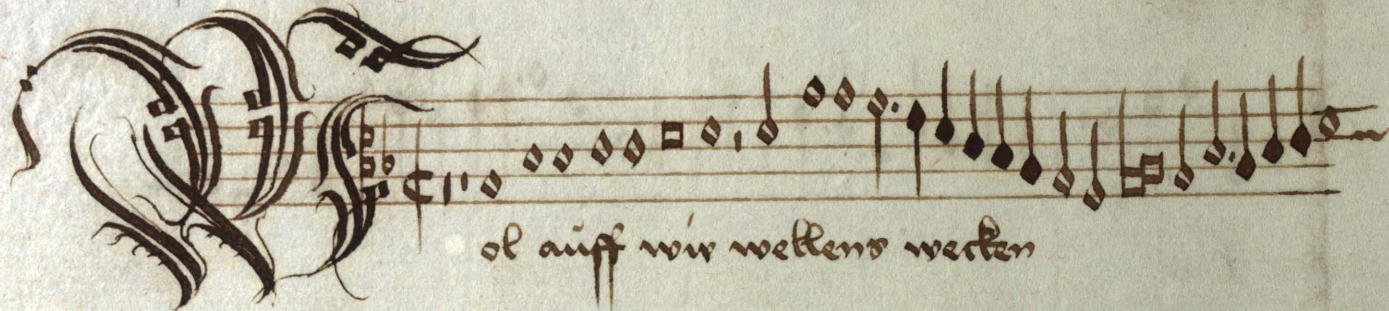 Wol auff wir wellens wecken